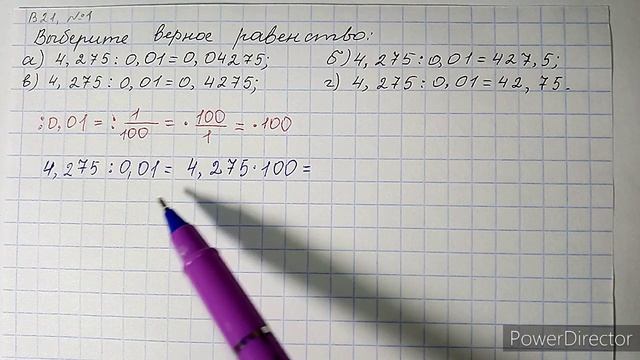 В21, №1
Выберите верное равенство:
а) 4,275:0,01=0,04275; б) 4,275:0,01=427,5;
в) 4,275:0,01=0,4275; г) 4,275:0,01=42,75.
:0,01 = : 1/100 = · 100/1 = ·100
4,275:0,01 = 4,275·100=
PowerDirector